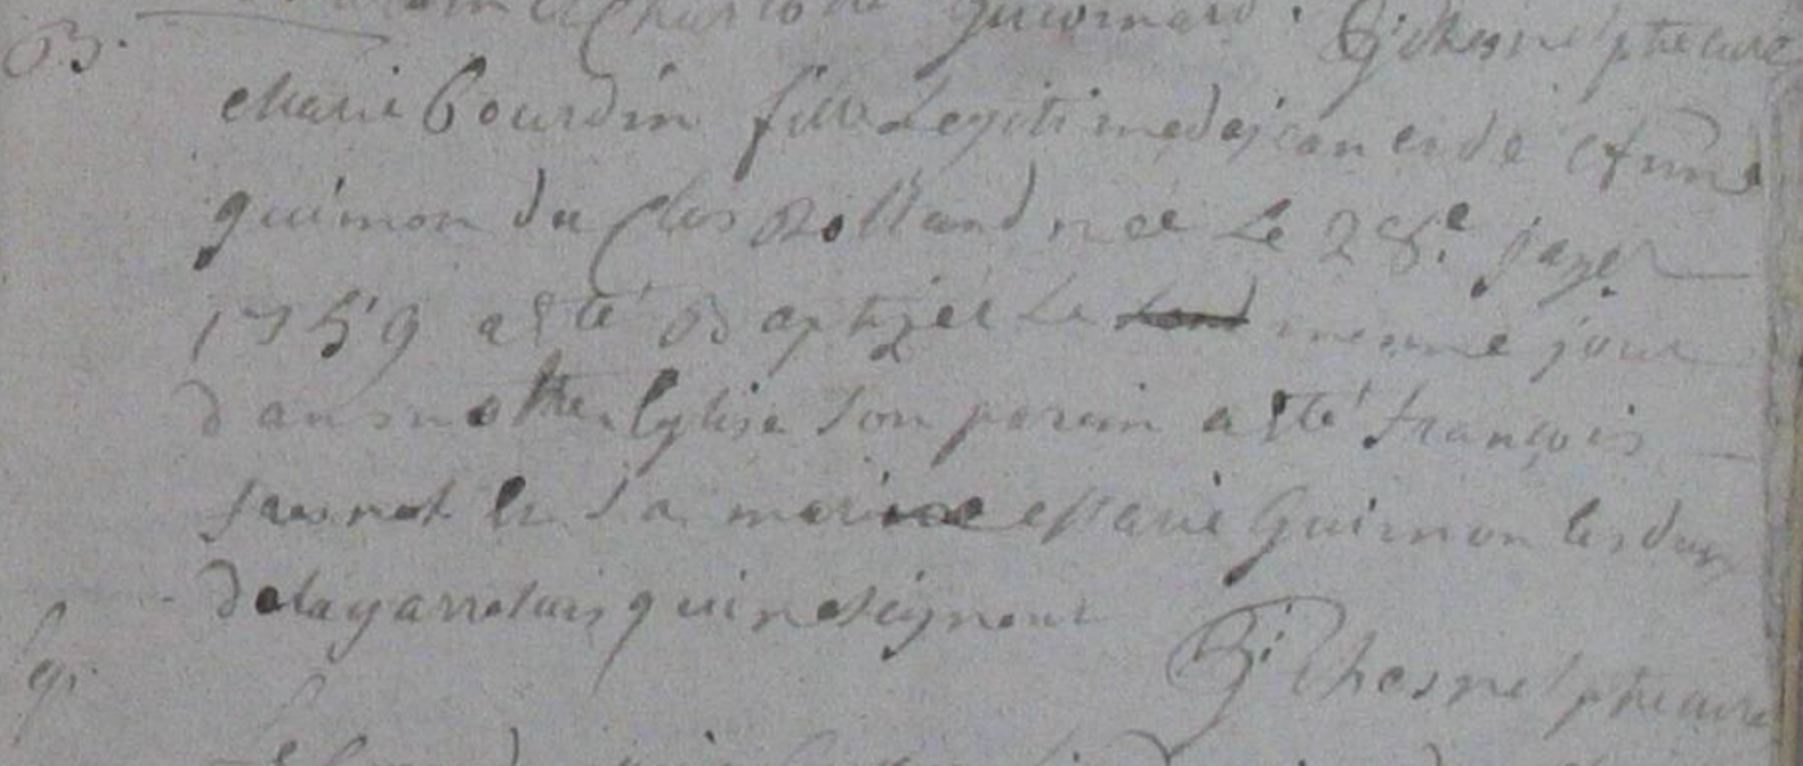 B.
et Charlotte guiomard. G: Chesnel ptre curé
Marie Bourdin fille Legitime de jean et de Anne
guimon du Clos Rolland née Le 28.e janer
1759 a esté Baptizée Le meme jour
dans nottre Eglise son parein a esté françois
et sa mareine Marie Guimon les deux
qui ne signent
G: Chesnel ptre curé